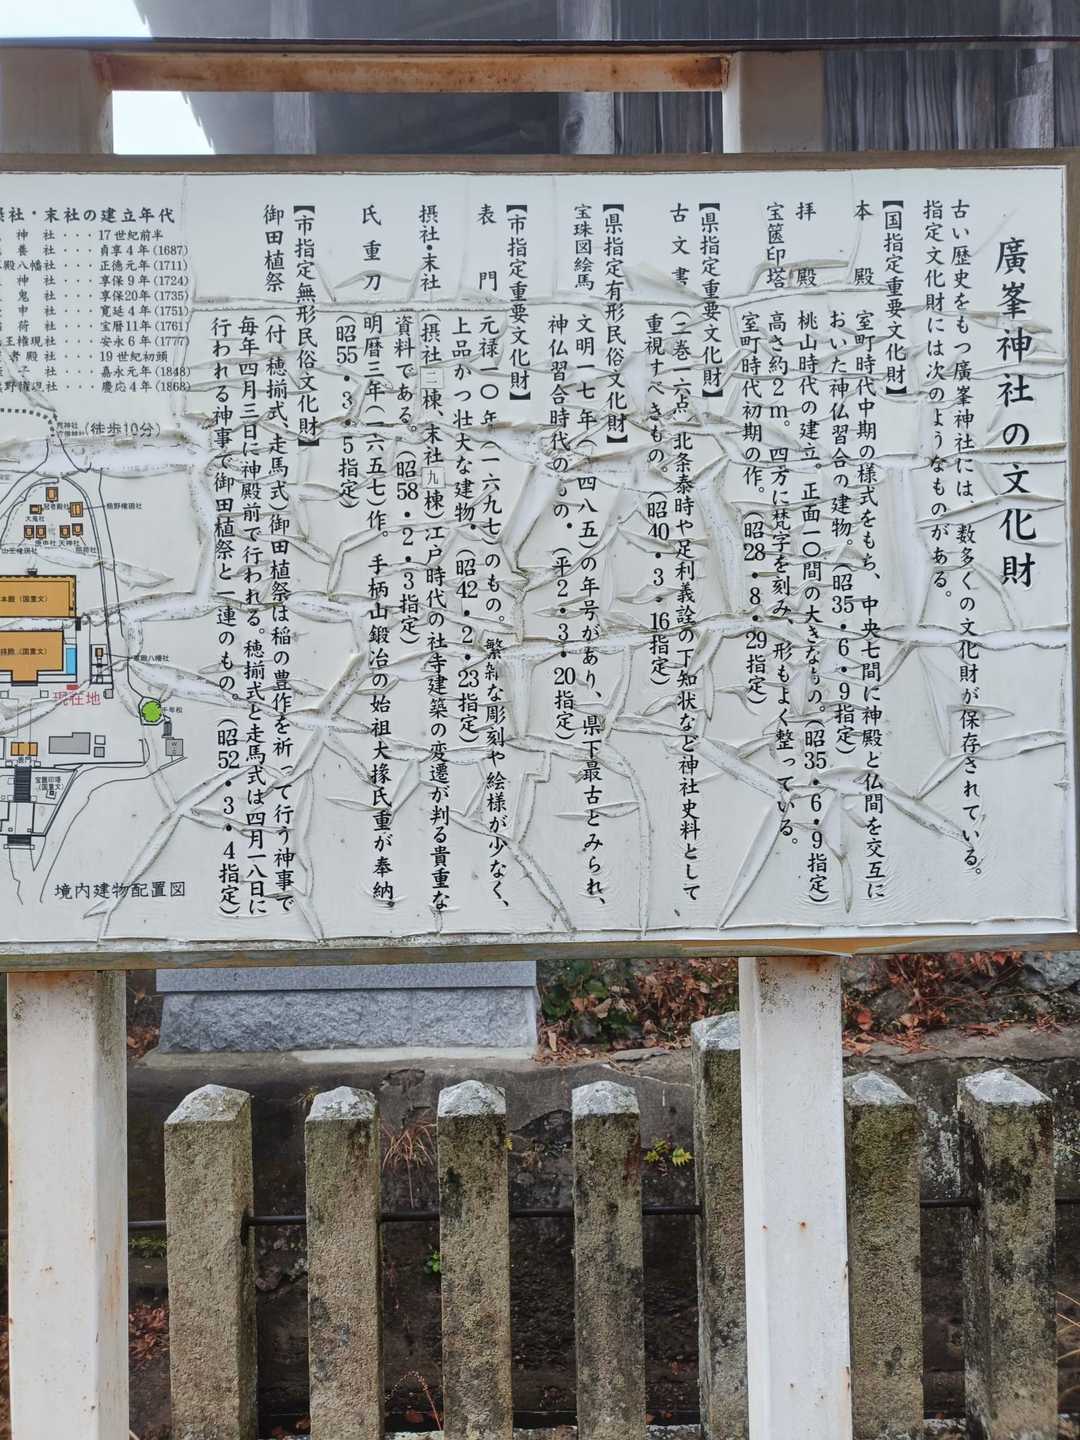 廣峯神社の文化財
古い歴史をもつ廣峯神社には、数多くの文化財が保存されている。
指定文化財には次のようなものがある。
【国指定重要文化財】
本殿 室町時代中期の様式をもち、中央七間に神殿と仏間を交互に
おいた神仏習合の建物。(昭35・6・9指定)
拝殿 桃山時代の建立。正面一〇間の大きなもの。(昭35・6・9指定)
宝篋印塔 高さ約2m。四方に梵字を刻み、形もよく整っている。
室町時代初期の作。(昭28・8・29指定)
【県指定重要文化財】
古文書 (二巻一六点)北条泰時や足利義詮の下知状など神社史料として
重視すべきもの。(昭40・3・16指定)
【県指定有形民俗文化財】
宝珠図絵馬 文明一七年(一四八五)の年号があり、県下最古とみられ、
神仏習合時代のもの。(平2・3・20指定)
【市指定重要文化財】
表門 元禄一〇年(一六九七)のもの。繁雑な彫刻や絵様が少なく、
上品かつ壮大な建物。(昭42・2・23指定)
摂社・末社 (摂社二棟、末社九棟)江戸時代の社寺建築の変遷が判る貴重な
資料である。(昭58・2・3指定)
氏重刀 明暦三年(一六五七)作。手柄山鍛冶の始祖大掾氏重が奉納。
(昭55・3・5指定)
【市指定無形民俗文化財】
御田植祭 (付 穂揃式、走馬式)御田植祭は稲の豊作を祈って行う神事で
毎年四月三日に神殿前で行われる。穂揃式と走馬式は四月一八日に
行われる神事で御田植祭と一連のもの。(昭52・3・4指定)
社・末社の建立年代
神社・・・17世紀前半
養社・・・貞享4年(1687)
殿八幡社・・・正徳元年(1711)
神社・・・享保9年(1724)
鬼社・・・享保20年(1735)
申社・・・寛延4年(1751)
荷社・・・宝暦11年(1761)
王権現社・・・安永6年(1777)
殿社・・・19世紀初頭
子社・・・嘉永元年(1848)
熊野権現社・・・慶応4年(1868)
(徒歩10分)
冠者殿社
熊野権現社
大鬼社
庚申社
天神社
稲荷社
山王権現社
本殿(国重文)
拝殿(国重文)
軍殿八幡社
現在地
千年松
WC
表門
宝篋印塔
(国重文)
境内建物配置図